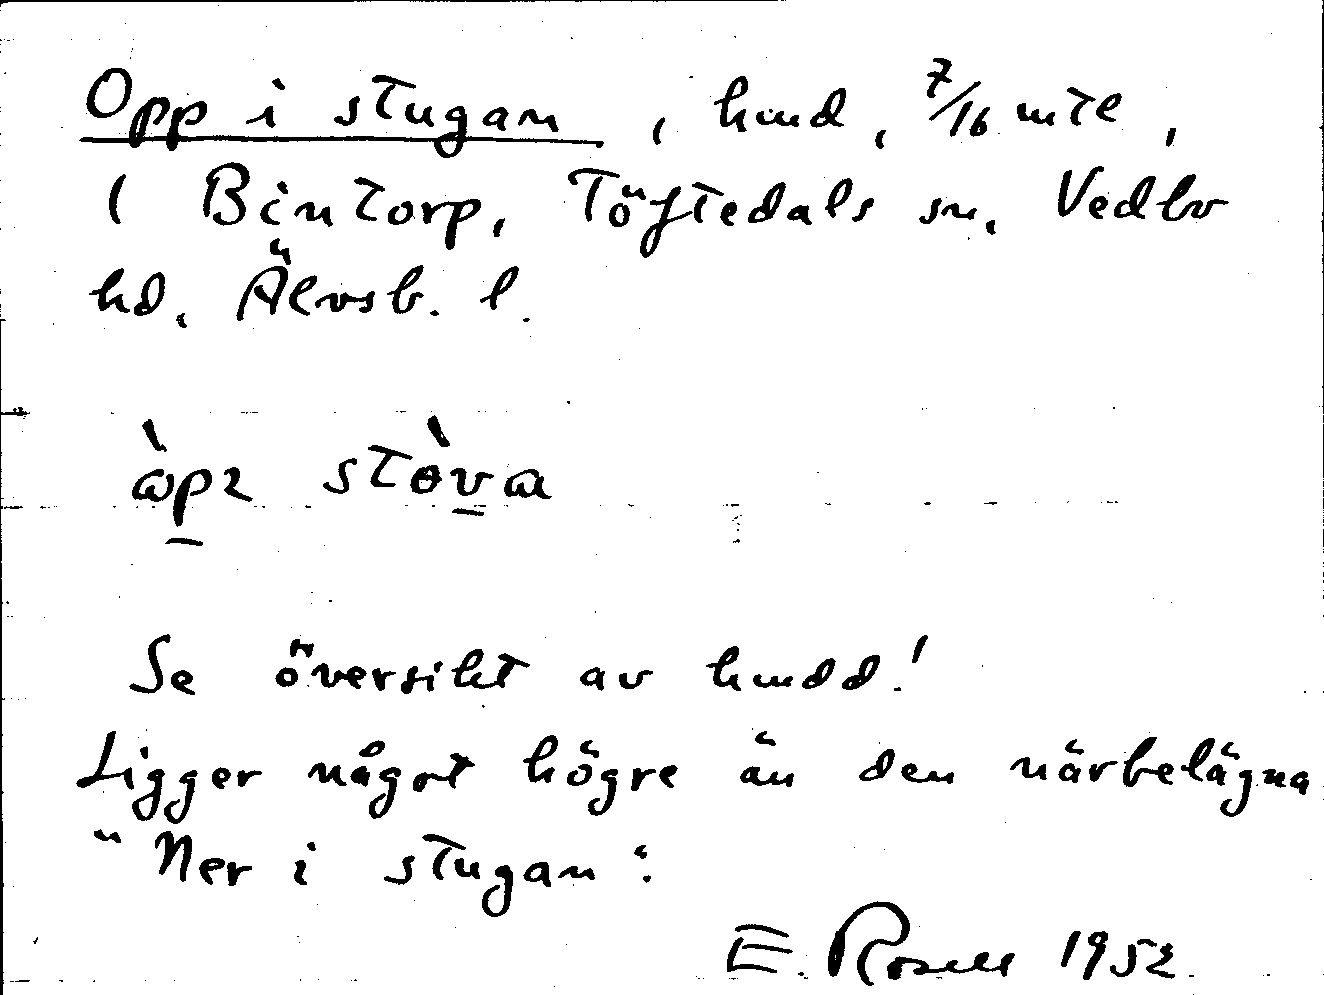 Opp i stugan, hmd, 7/16 mtl,
i Bintorp, Töftedals sn, Vedbo
hd, Älvsb. l.
Se översikt av hmdd!
Ligger något högre än den närbelägna
"Ner i stugan".
E. Rosell 1952